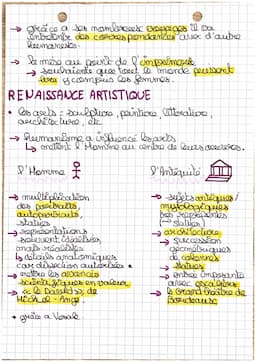 → grâce à ses nombreux voyages il va
entretenir des correspondances avec d'autre
humanistes.
→ la mise au point de l'imprimerie
→ souhaitent que tout le monde puissent
lire y compris les femmes.
RENAISSANCE ARTISTIQUE
• les arts : sculpture, peinture, littérature,
architecture, etc.
→ humanisme a influencé les arts
↳ mettent l'Homme au centre de leurs œuvres.
l'Homme
→ multiplication
des portraits,
autoportraits,
statues
→ représentations
soient idéalisées,
mais réalistes
↳ détails anatomiques
car dissection autorisées •
→ mettre les avancées
scientifiques en valeur
→ « le David », de
Michel-Ange.
• grâce à Vésale
l'Antiquité
→ sujets antiques /
mythologiques
représentés
(statues)
→ architecture
→ succession
géométriques
de colonnes
→ statues
→ entrée imposante
avec escaliers
le Grand théâtre de
Bordeaux